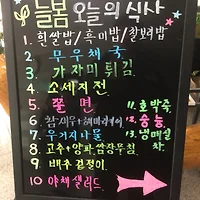 늘봄 오늘의 식사
1. 흰쌀밥/흑미밥/찰보리밥
2. 무우채 국
3. 가자미 튀김
4. 소세지전
5. 쫄 면
6. 참새우+해파리냉채
7. 우거지나물
8. 고추+양파+쌈장무침
9. 배추 겉절이
10 야채샐러드
11. 호박죽
12. 숭늉
13. 냉매실차